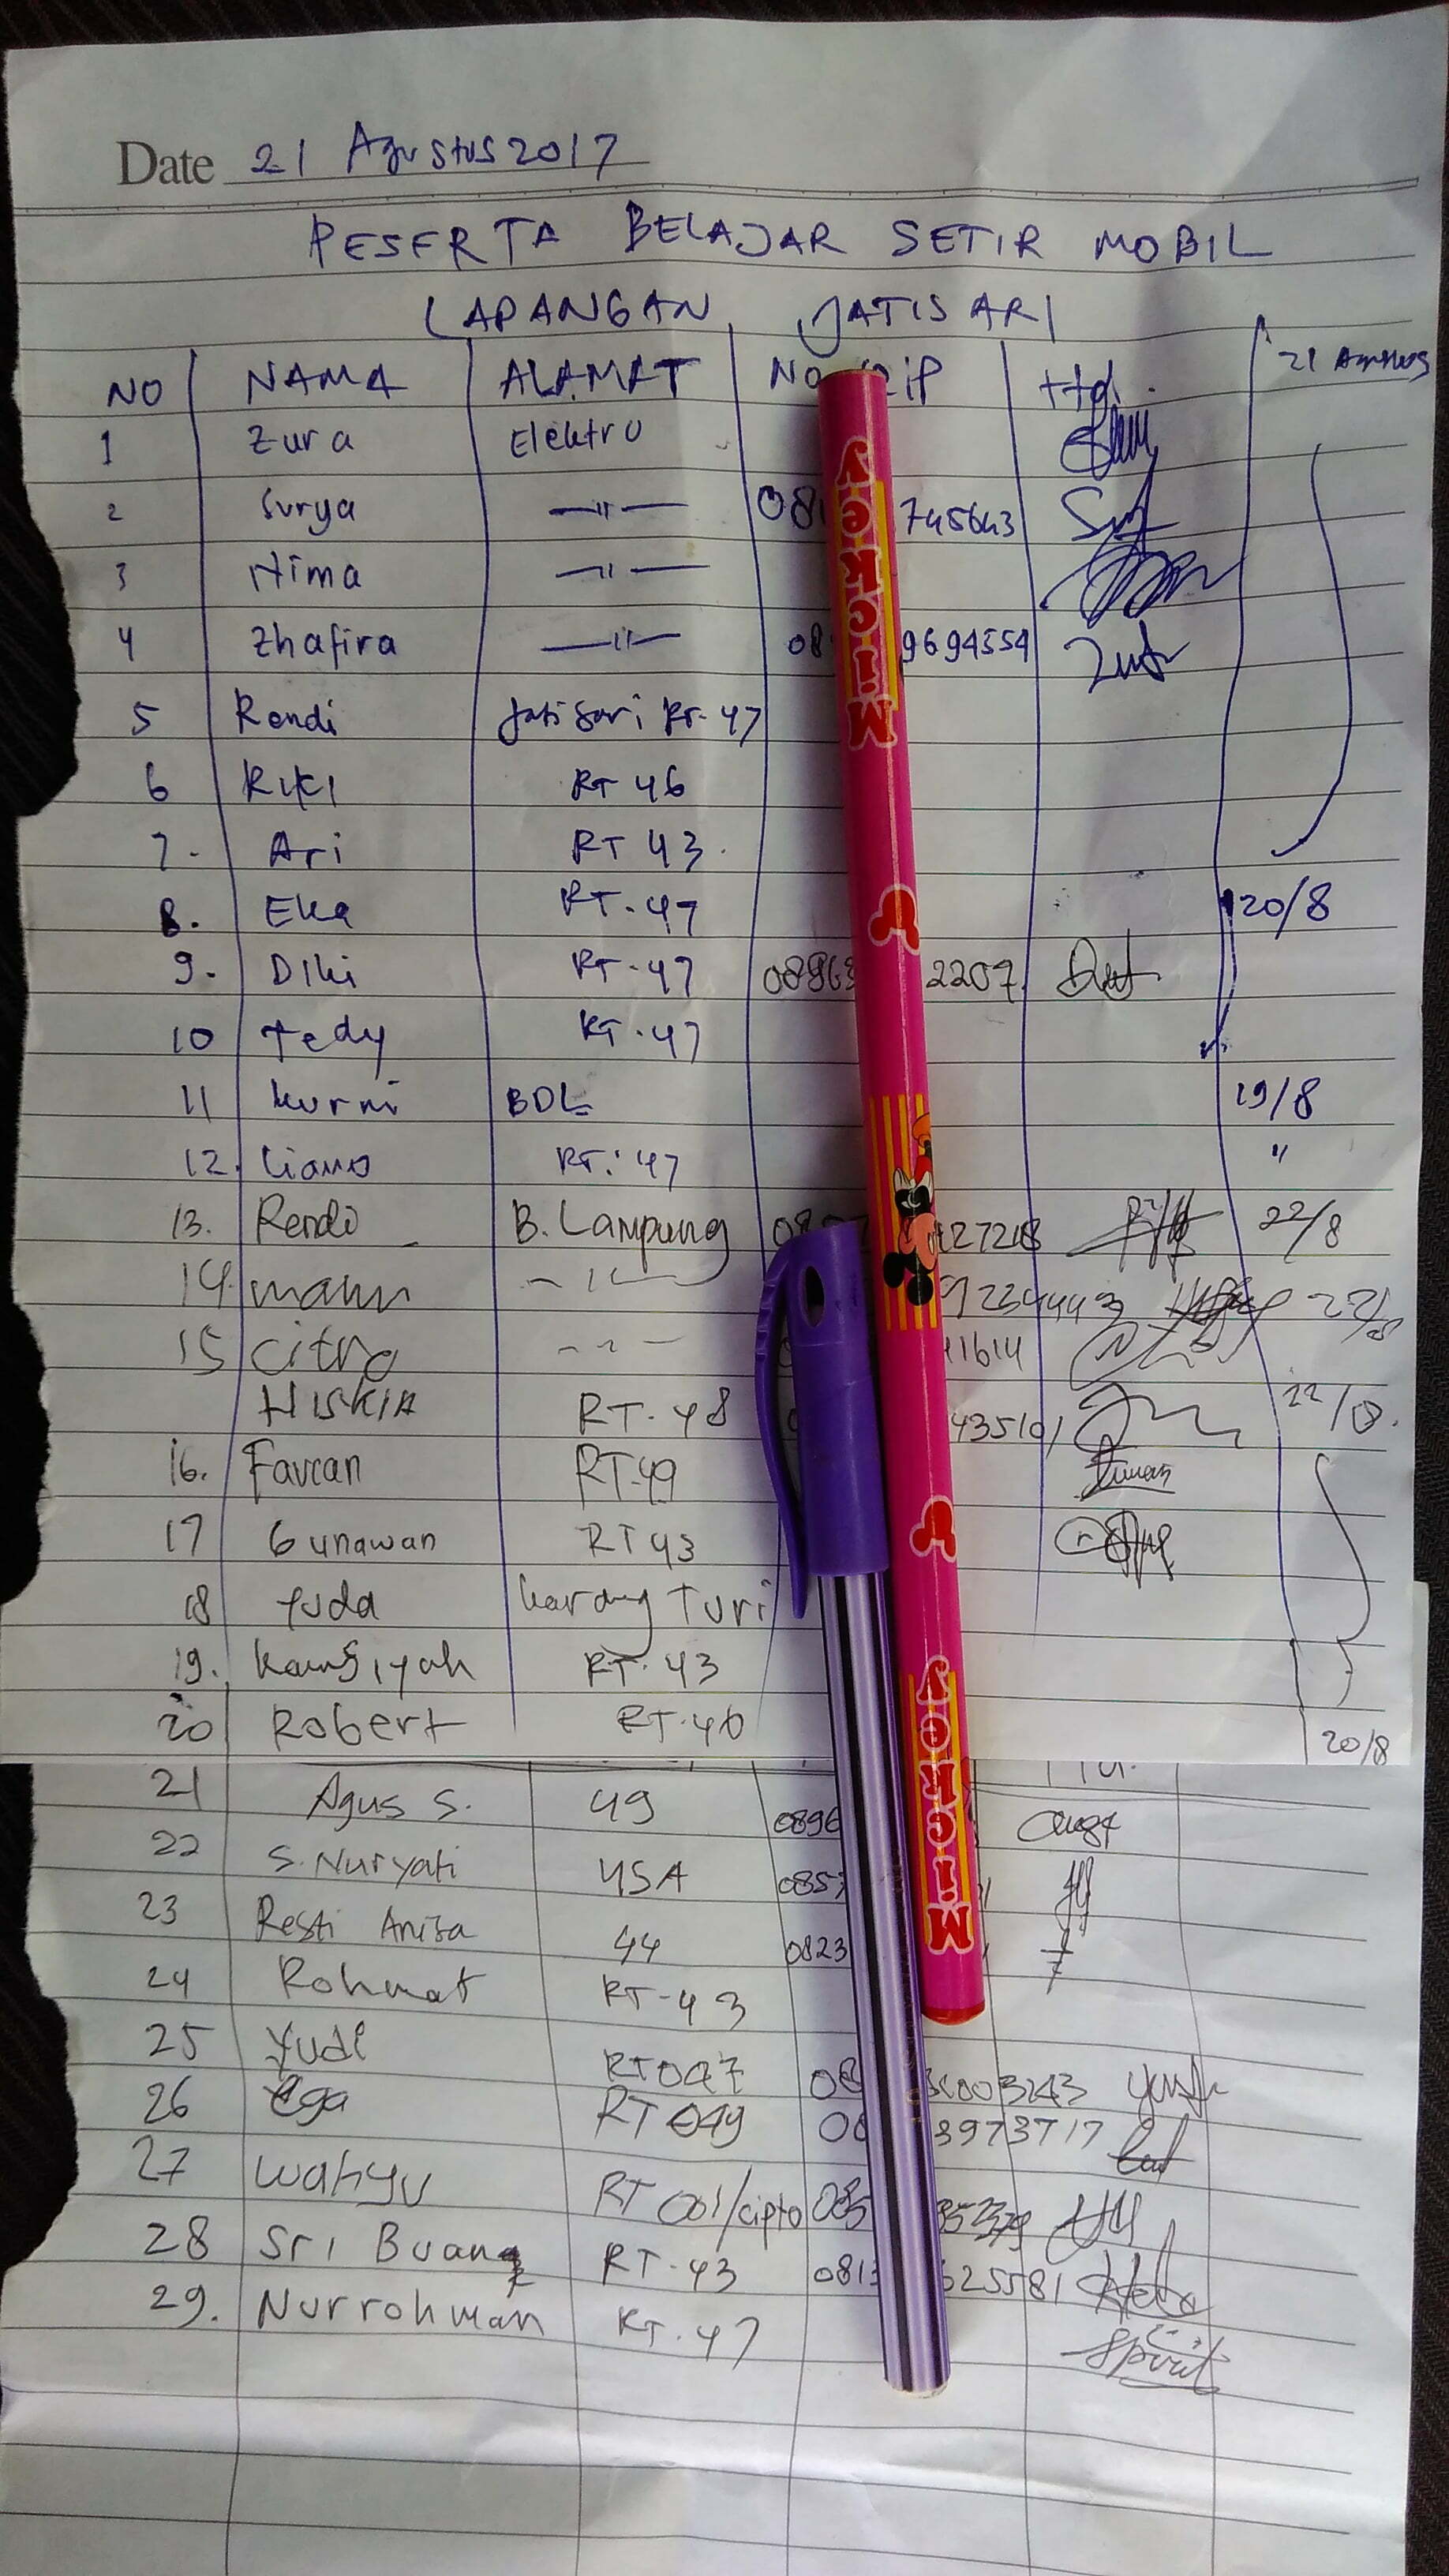 Date 21 Agustus 2017
PESERTA BELAJAR SETIR MOBIL
LAPANGAN JATISARI
NO NAMA ALAMAT No ttd. 21 Agustus
1 Zura Elektro
2 Surya —"— 08 745643
3 —"—
4 Zhafira —"— 08 9694554
5 Rendi Jatisari RT-47
6 RIKI RT 46
7. Ari RT 43.
8. Eka RT-47 20/8
9. Diki RT-47 0896 2207
10 Tedy RT-47
11 kurni BDL 19/8
12. RT. 47 "
13. Rendi B. Lampung 08 27218 22/8
14. 22/8
15 citra 11614
HISKIA RT-48 435101 22/8.
16. RT-49
17 Gunawan RT 43
18 Yuda karang Turi
19. RT. 43
20 Robert RT-40 20/8
21 Agus S. 49 0896
22 S. Nuryati 45A 085
23 Resti Anisa 44 0823
24 Rohmat RT-43
25 Yudi RT 047 08 003243
26 Ega RT 049 08 3973717
27 Wahyu RT 001/cipto 085
28 Sri Buang RT-43 081 625581
29. Nurrohman RT. 47
Mickey
Mickey